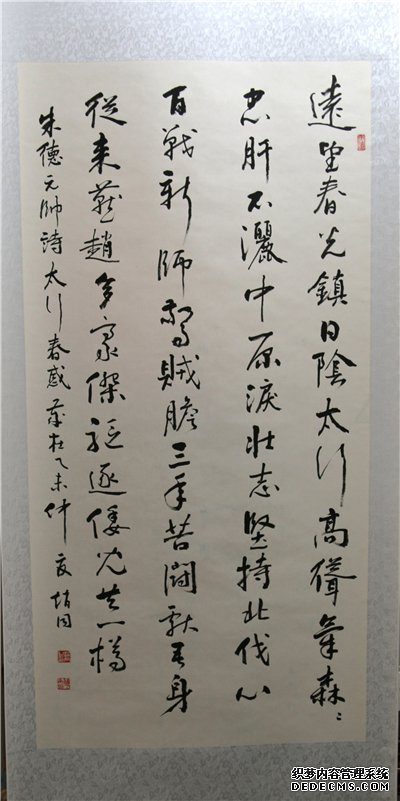 遠望春光鎮日陰太行高聳氣森〻
忠肝不灑中原淚壯志堅持北伐心
百戰新師驚賊膽三年苦鬪獻吾身
從来燕趙多豪傑驅逐倭兒共一樽
朱德元帥詩太行春感歲在乙未仲夏
织梦内容管理系统
DEDECMS.COM